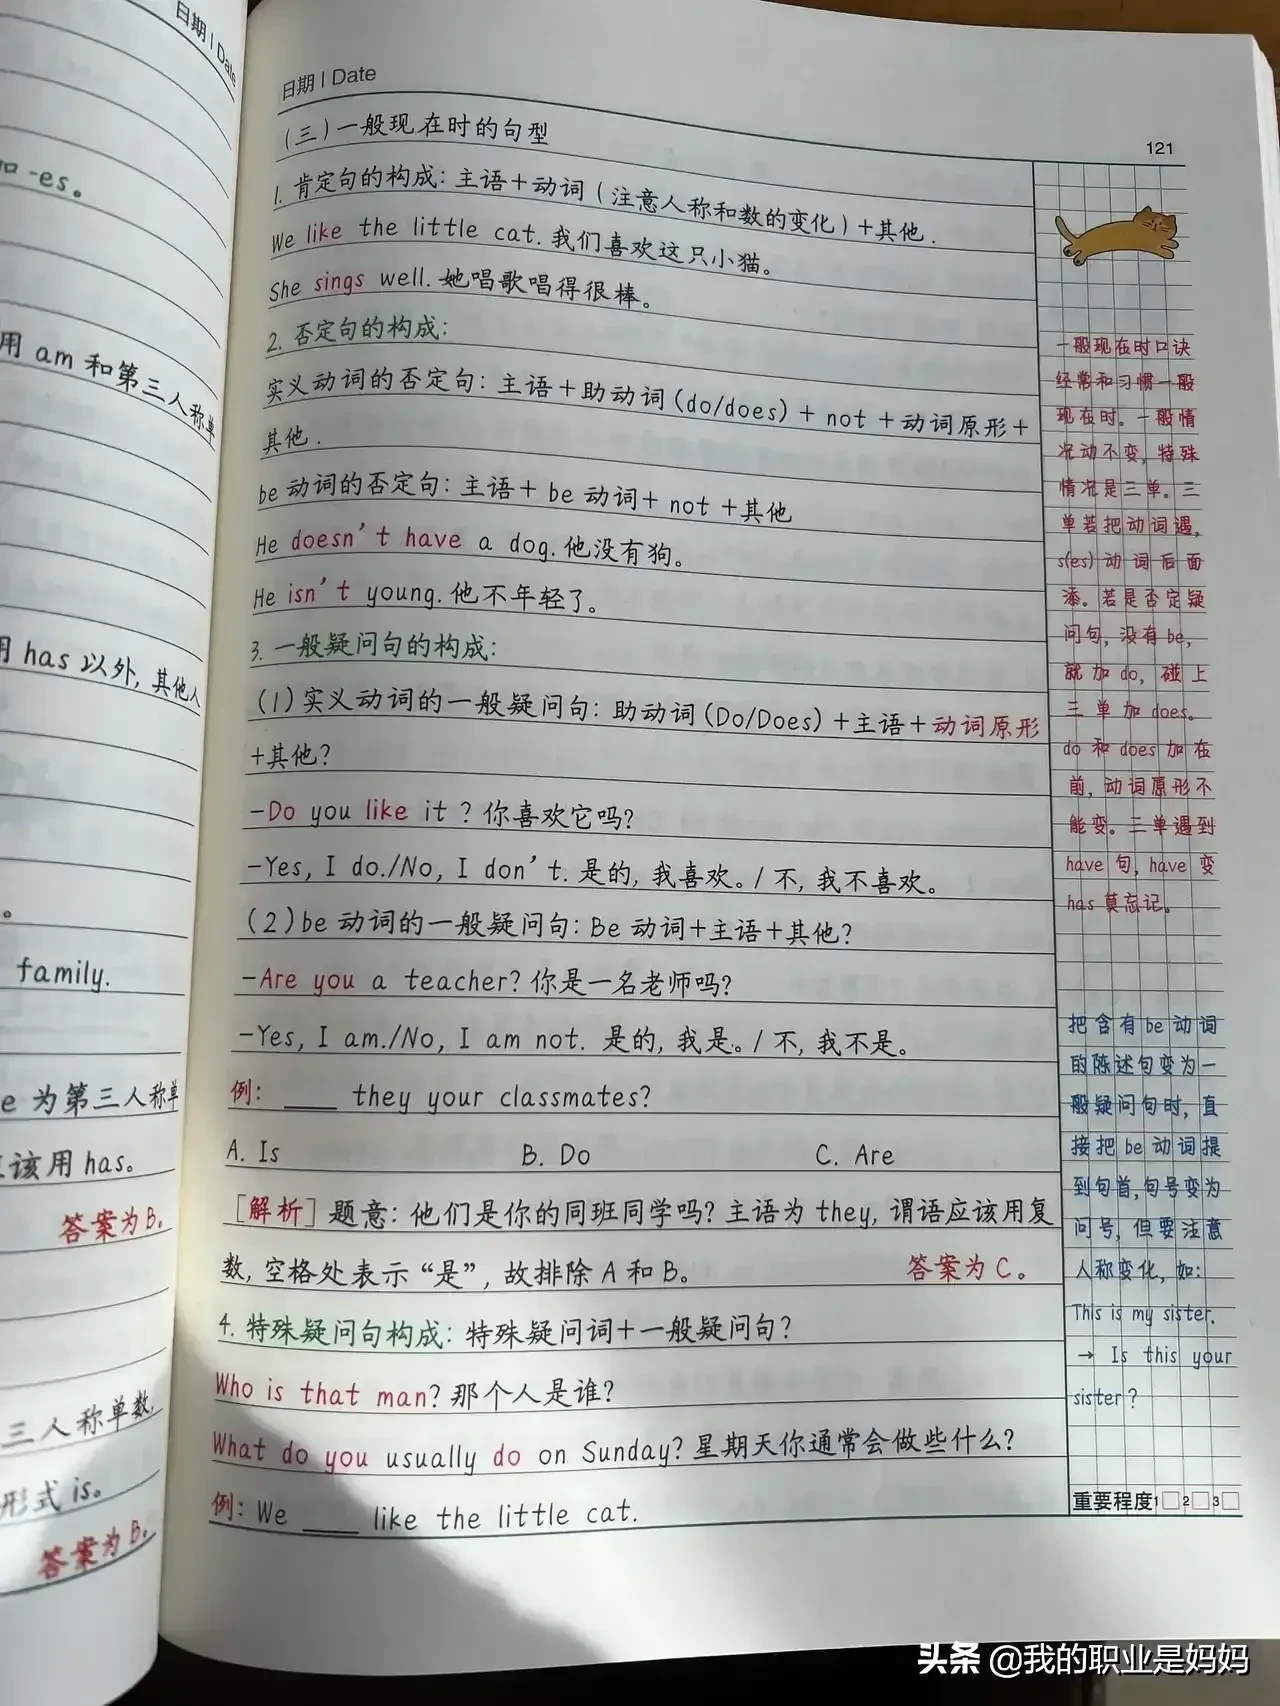 日期 | Date
-es。
用 am 和第三人称单
用 has 以外, 其他人
。
family.
e 为第三人称单
应该用 has。
答案为 B。
三人称单数,
形式 is。
答案为 B。
日期 | Date
121
(三)一般现在时的句型
1. 肯定句的构成: 主语+动词(注意人称和数的变化)+其他.
We like the little cat. 我们喜欢这只小猫。
She sings well. 她唱歌唱得很棒。
2. 否定句的构成:
实义动词的否定句: 主语+助动词(do/does)+ not +动词原形+
其他.
be 动词的否定句: 主语+ be 动词+ not +其他
He doesn't have a dog. 他没有狗。
He isn't young. 他不年轻了。
3. 一般疑问句的构成:
(1)实义动词的一般疑问句: 助动词(Do/Does)+主语+动词原形
+其他?
-Do you like it ? 你喜欢它吗?
-Yes, I do./No, I don't. 是的, 我喜欢。/ 不, 我不喜欢。
(2)be 动词的一般疑问句: Be 动词+主语+其他?
-Are you a teacher? 你是一名老师吗?
-Yes, I am./No, I am not. 是的, 我是。/ 不, 我不是。
例: ____ they your classmates?
A. Is B. Do C. Are
[解析] 题意: 他们是你的同班同学吗? 主语为 they, 谓语应该用复
数, 空格处表示“是”, 故排除 A 和 B。 答案为 C。
4. 特殊疑问句构成: 特殊疑问词+一般疑问句?
Who is that man? 那个人是谁?
What do you usually do on Sunday? 星期天你通常会做些什么?
例: We ____ like the little cat.
一般现在时口诀
经常和习惯一般
现在时。一般情
况动不变, 特殊
情况是三单。三
单若把动词遇,
s(es) 动词后面
添。若是否定疑
问句, 没有 be,
就加 do, 碰上
三单加 does。
do 和 does 加在
前, 动词原形不
能变。三单遇到
have 句, have 变
has 莫忘记。
把含有 be 动词
的陈述句变为一
般疑问句时, 直
接把 be 动词提
到句首, 句号变为
问号, 但要注意
人称变化, 如:
This is my sister.
→ Is this your
sister?
重要程度 1□ 2□ 3□
头条 @我的职业是妈妈